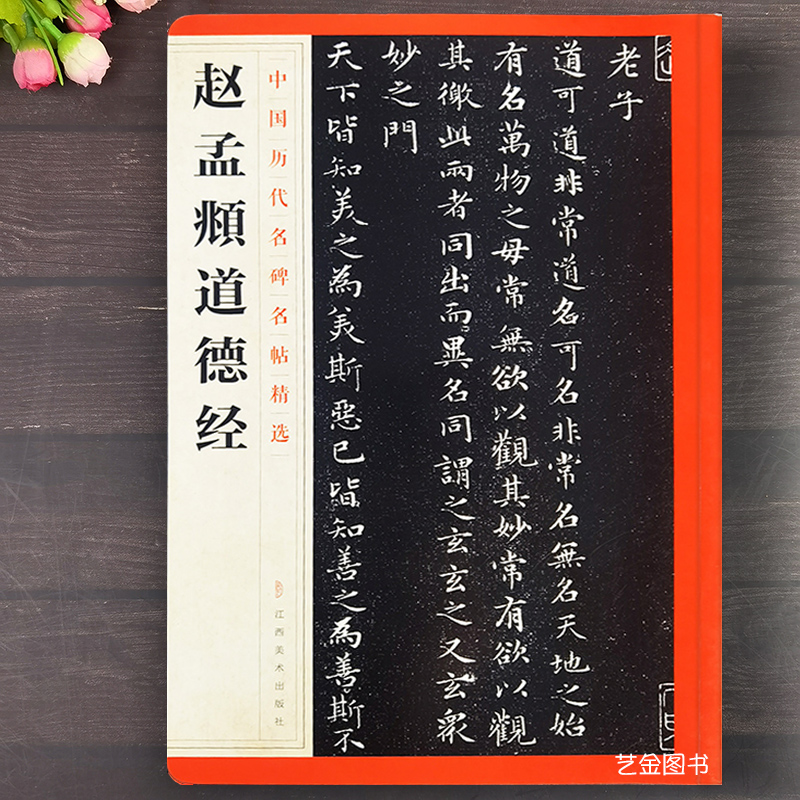 赵孟頫道德经
中国历代名碑名帖精选
江西美术出版社
老子
道可道非常道名可名非常名無名天地之始
有名萬物之母常無欲以觀其妙常有欲以觀
其徼此兩者同出而異名同謂之玄玄之又玄眾
妙之門
天下皆知美之為美斯惡已皆知善之為善斯不
艺金图书